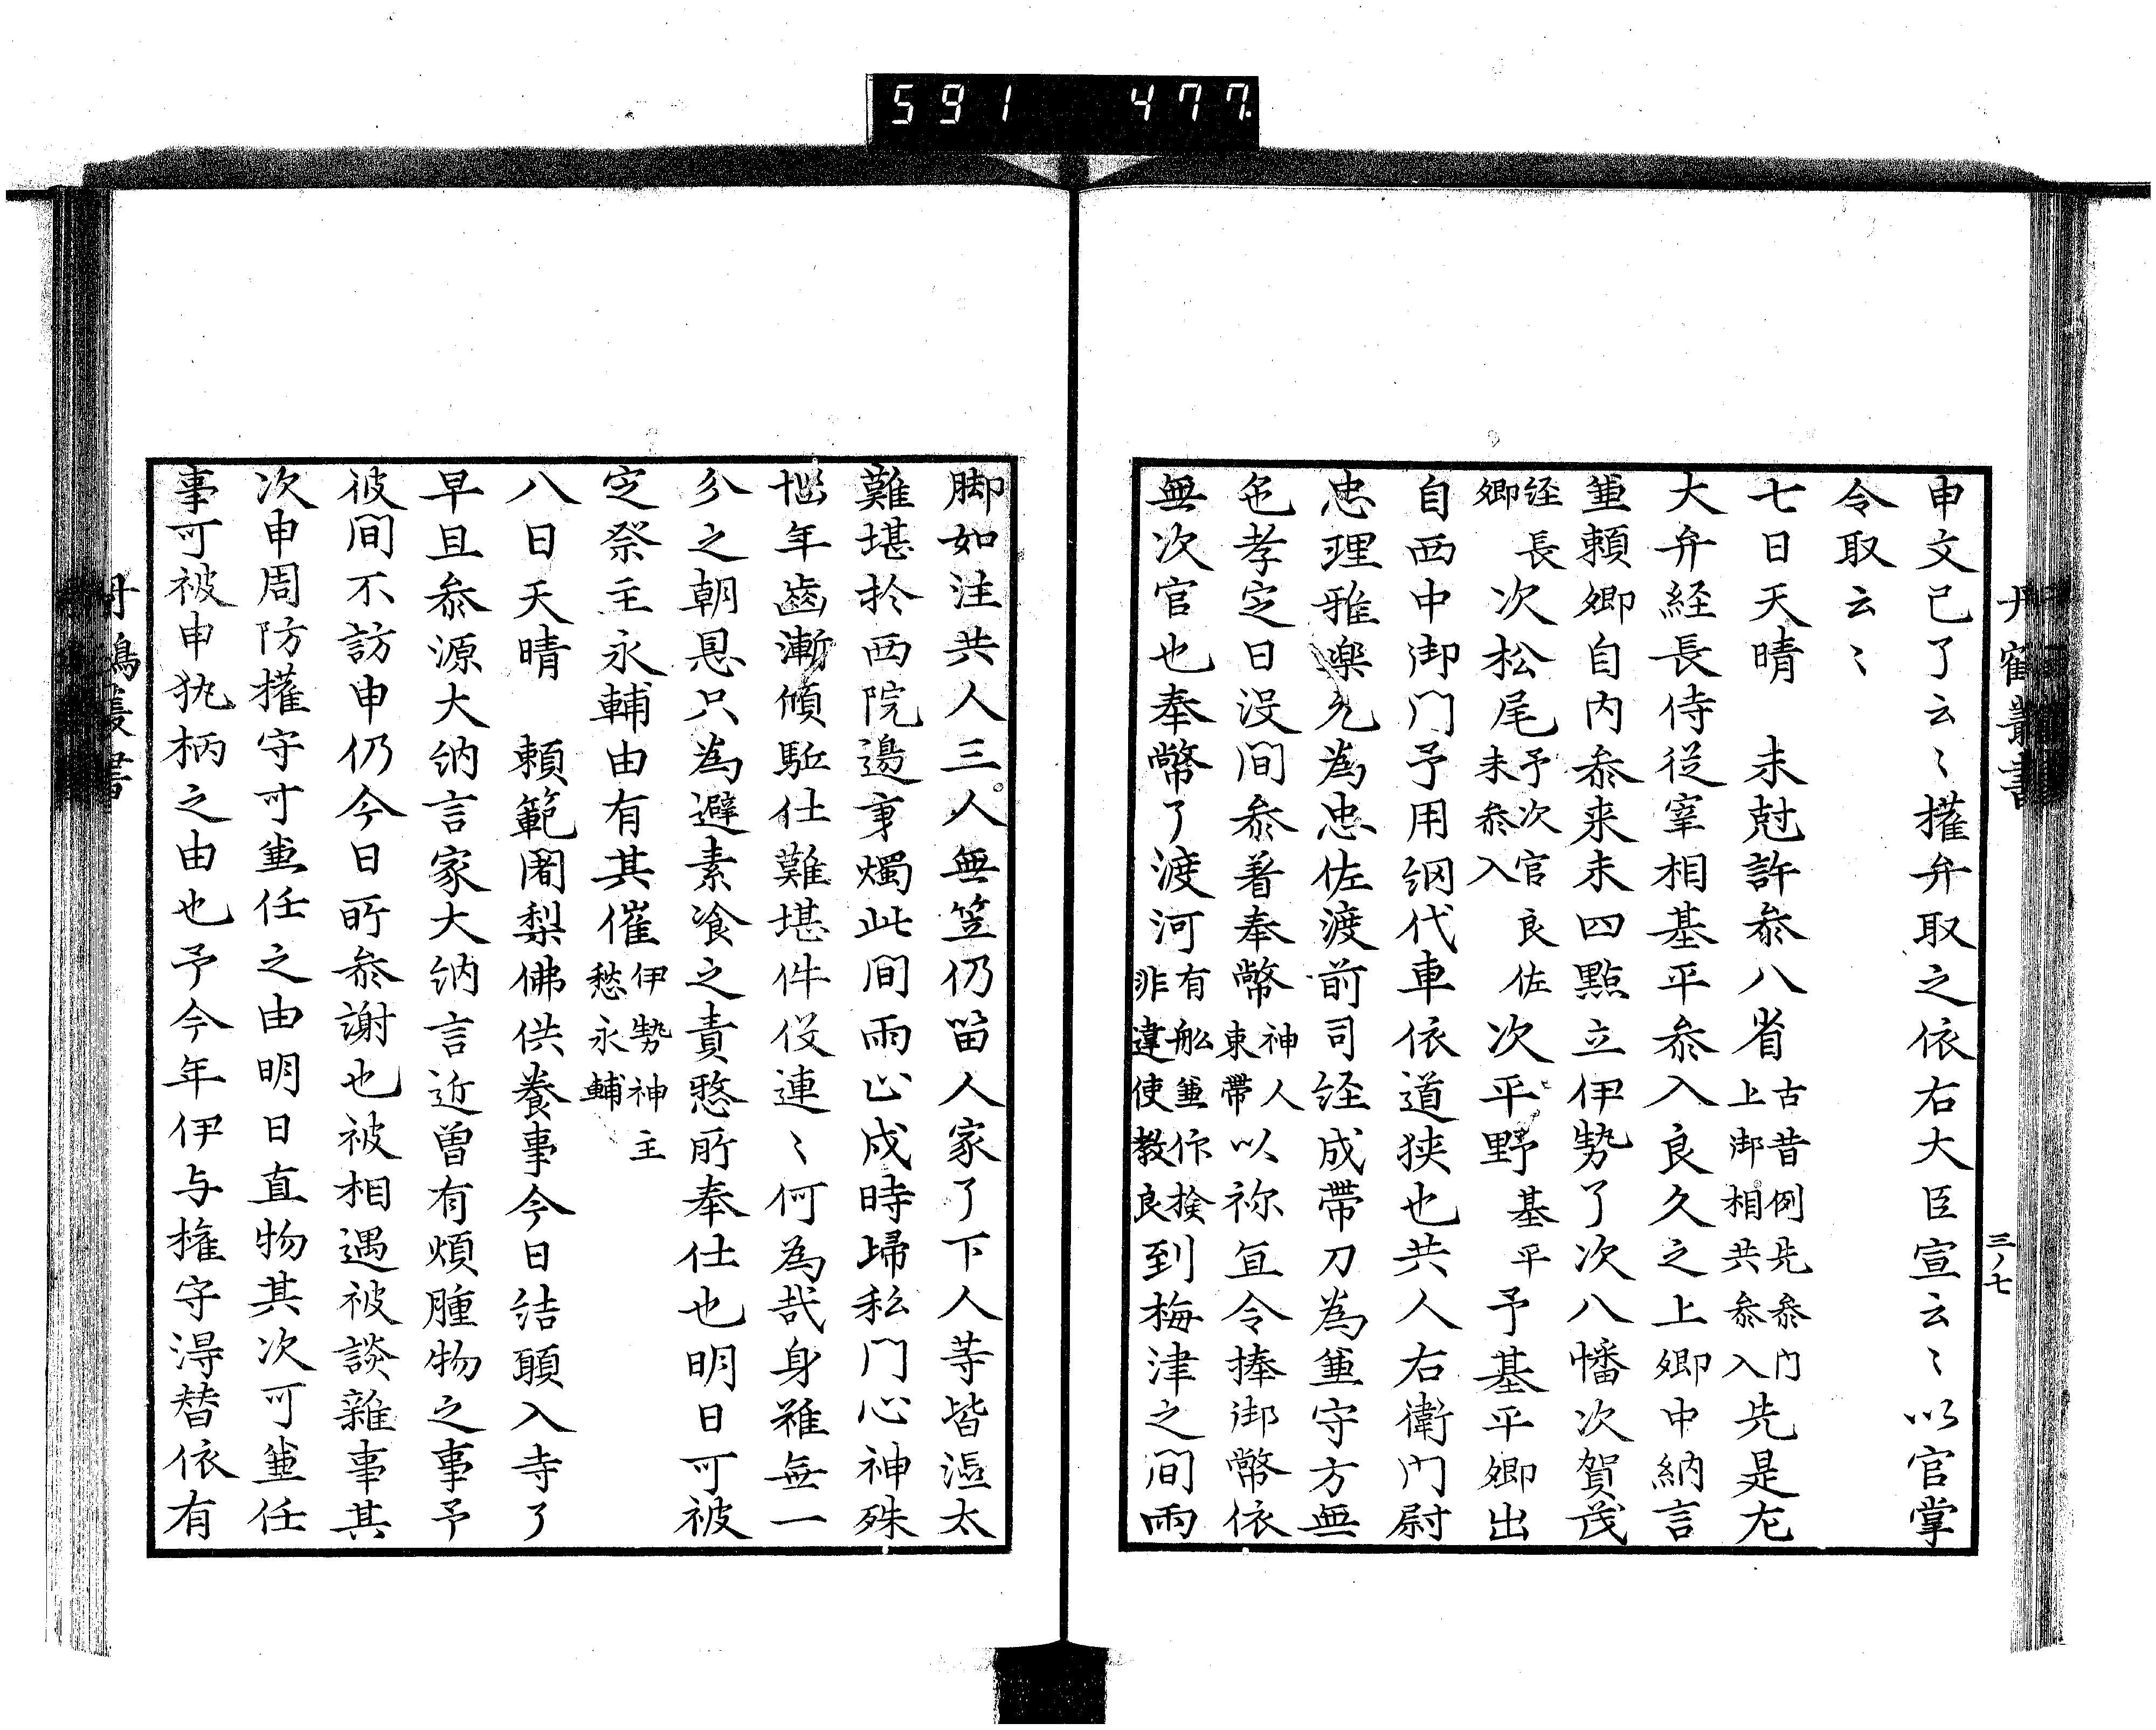 591 477
丹鶴叢書
三ノ七
申文已了云〻權弁取之依右大臣宣云〻以官掌
令取云〻
七日天晴 未尅許參八省古昔例先參門上御相共參入先是左
大弁経長侍従宰相基平參入良久之上卿中納言
兼頼卿自内參来未四點立伊勢了次八幡次賀茂
経長卿長次松尾予次官良佐未參入次平野基平予基平卿出
自西中御門予用網代車依道狭也共人右衛門尉
忠理雅樂允為忠佐渡前司経成帶刀為兼守方無
色孝定日没間參著奉幣神人東帶以祢宜令捧御幣依
無次官也奉幣了渡河有舩兼作揆非違使教良到梅津之間雨
脚如注共人三人無笠仍留人家了下人等皆濕太
難堪於西院邊秉燭此間雨止戍時歸私門心神殊
惱年齒漸傾駈仕難堪件役連〻何為哉身雖無一
分之朝恩只為避素飡之責愁所奉仕也明日可被
定祭主永輔由有其催伊勢神主愁永輔
八日天晴 頼範闍梨佛供養事今日結願入寺了
早旦參源大納言家大納言近曽有煩腫物之事予
彼間不訪申仍今日所參謝也被相遇被談雜事其
次申周防權守可兼任之由明日直物其次可兼任
事可被申執柄之由也予今年伊与權守得替依有